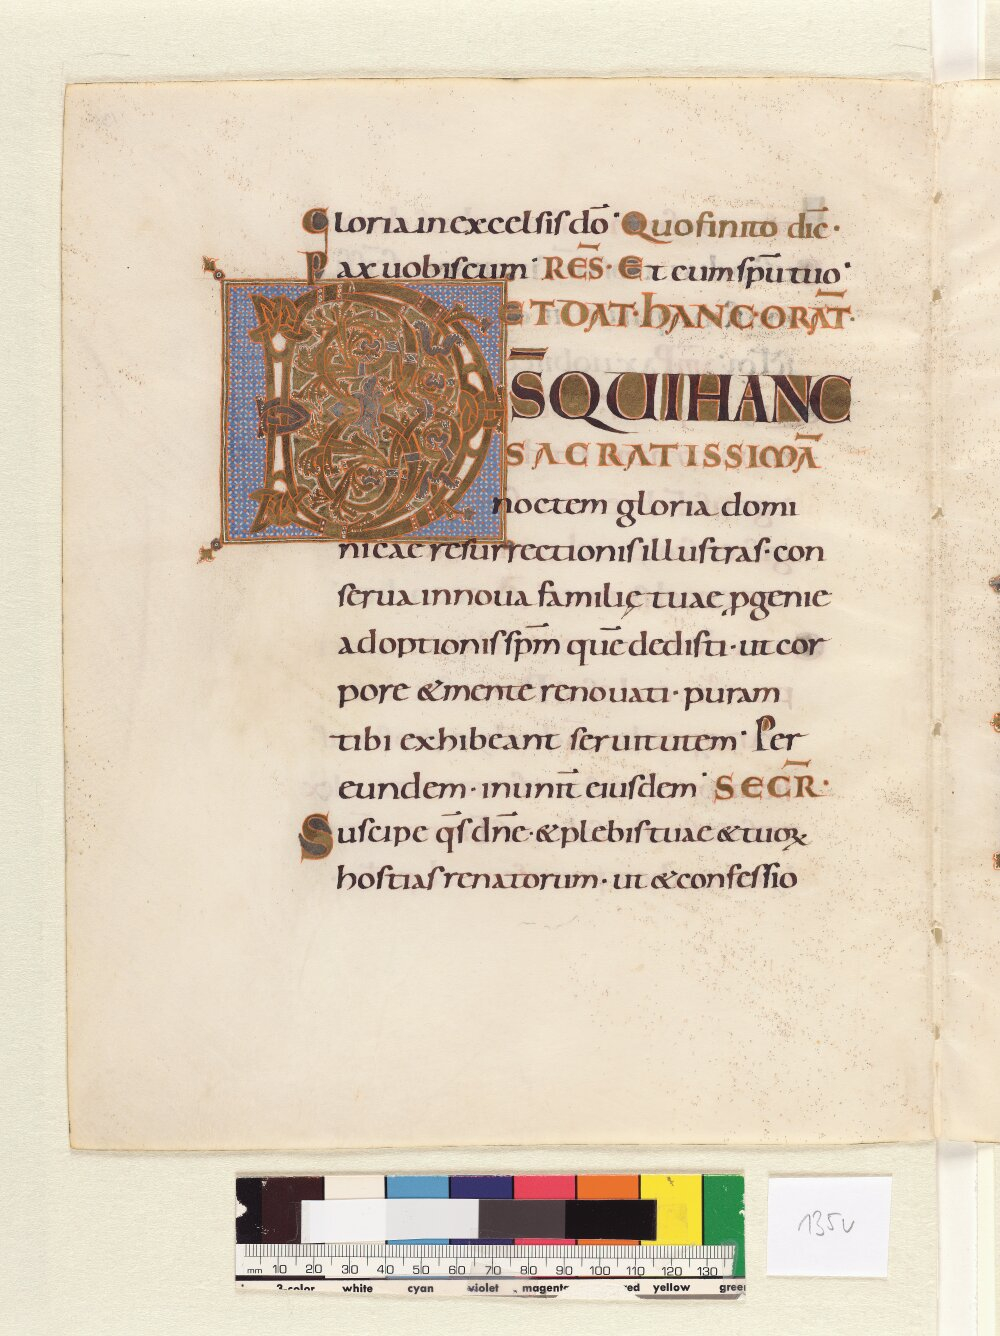 Gloria in excelsis dō Quo finito diē·
Pax uobiscum· RĒS· Et cum spū tuo·
ET DAT· hANC· ORAT̄·
D̄S QUI HANC
SACRATISSIMĀ
noctem gloria domi
nicae resurrectionis illustras· con
serua in noua familię tuae ꝓgenie
adoptionis sp̄m quē dedisti· ut cor
pore & mente renouati· puram
tibi exhibeant seruitutem· Per
eundem· in unit̄ eiusdem· SECR̄·
Suscipe q̄s dn̄e· & plebis tuae & tuoꝝ
hostias renatorum· ut & confessio
135v
mm 10 20 30 40 50 60 70 80 90 100 110 120 130
3-color white cyan violet magenta red yellow green